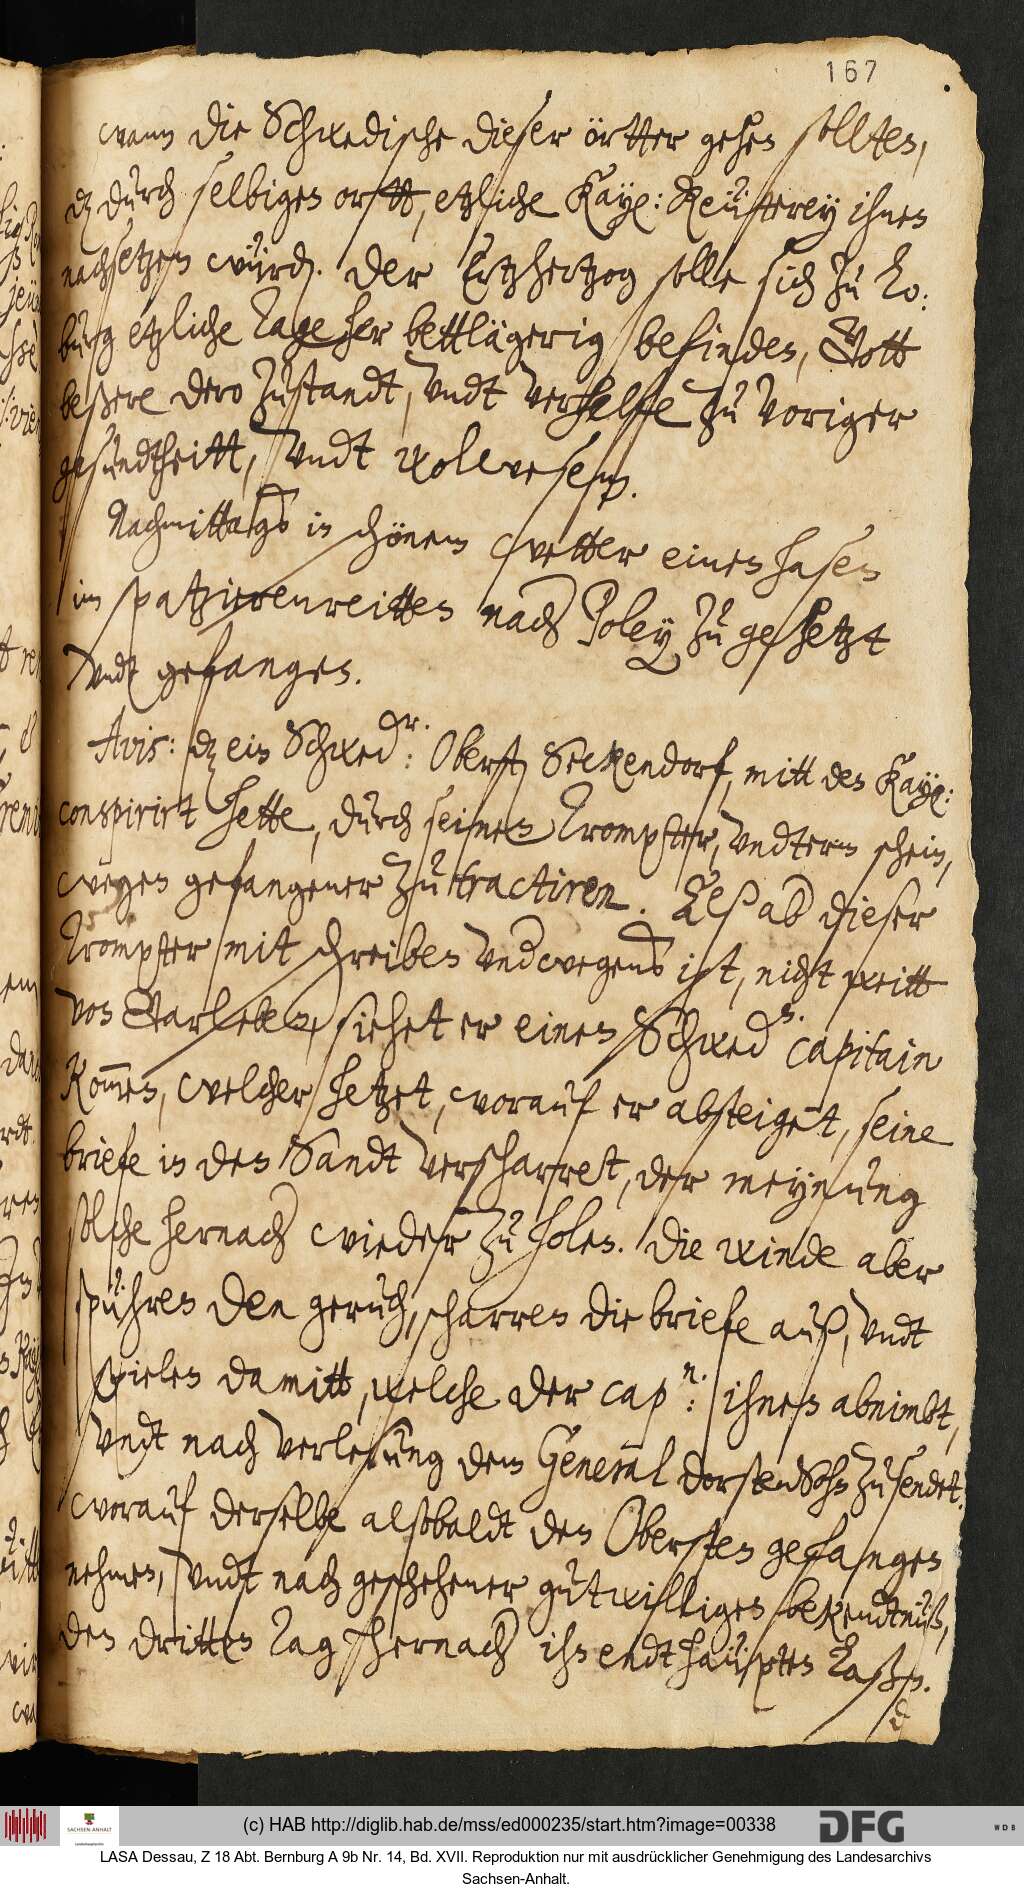 167
wann die Schwedische dieser örtter gehen sollten,
dz durch selbigen ortt, etzliche Kay: Reütterey ihnen
nachsetzen würde. Der Ertzhertzog solle sich zu Co:
burg etzliche Tage her bettlägerig befinden, Gott
beßere dero zustandt, undt verhelffe zu voriger
gesundtheitt, undt wolwesen.
Nachmittags in schönem wetter einen hasen
im spatzirenreitten nach Poley zu gehetzt
undt gefangen.
Avis: dz ein Schwedr: Oberst Seckendorf, mitt den Kay:
conspirirt hette, durch seinen Trompter, undterm schein,
wegen gefangener zu tractiren. Alß ab dieser
Trompter mit schreiben undwegens ist, nicht weitt
von Garleben, siehet er einen Schweds. capitain
kommen, welcher hetzet, worauf er absteiget, seine
briefe in den Sandt verscharret, der meynung
solche hernach wieder zu holen. Die winde aber
spühren den geruch, scharren die briefe auß, undt
spielen damitt, welche der capn: ihnen abnimbt,
undt nach verlesung dem General Dorstensohn zusendet.
worauf derselbe alßbaldt den Obersten gefangen
nehmen, undt nach geschehener gutwilligen bekendtnüß,
den dritten Tag hernach ihn endthäupten laßen.
(c) HAB http://diglib.hab.de/mss/ed000235/start.htm?image=00338
SACHSEN-ANHALT
DFG
WDB
LASA Dessau, Z 18 Abt. Bernburg A 9b Nr. 14, Bd. XVII. Reproduktion nur mit ausdrücklicher Genehmigung des Landesarchivs
Sachsen-Anhalt.